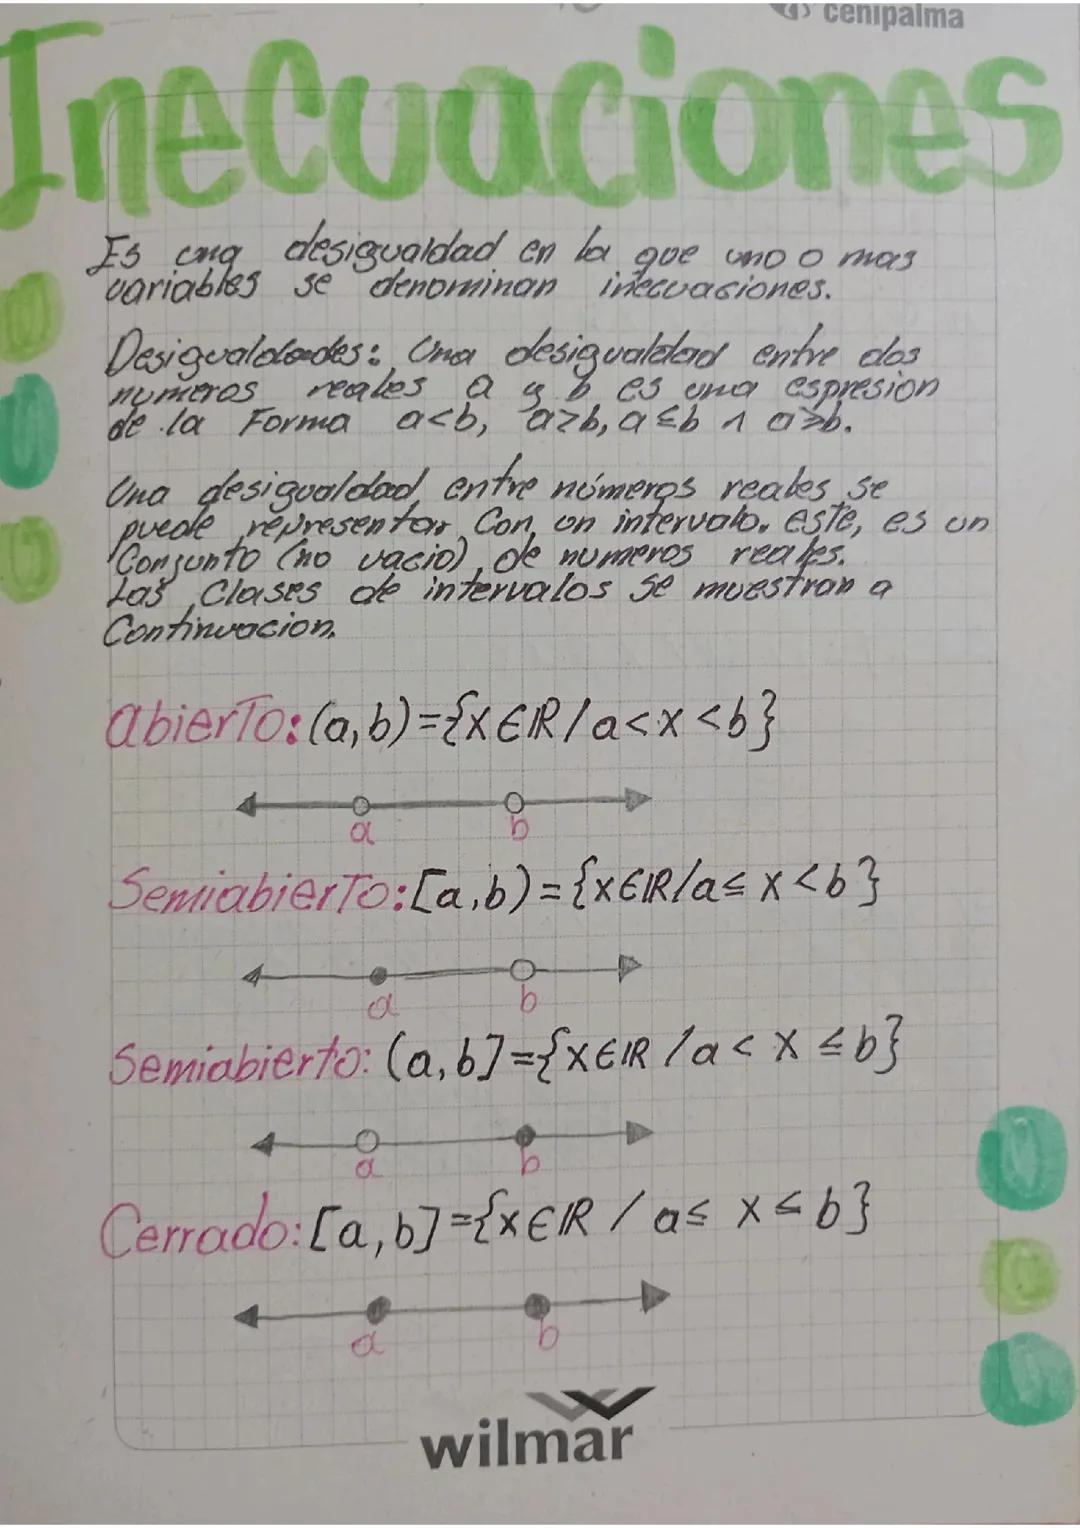 cenipalma
Inecuaciones
Es una desigualdad en la que uno o mas
variables se denominan inecuasiones.
Desigualdades: Una desigualdad entre dos
numeros reales a y b es una espresion
de la Forma a<b, a>b, a≤b ∧ a≥b.
Una desigualdad entre números reales se
puede representar Con un intervalo. este, es un
Conjunto (no vacio) de numeros reales.
Las Clases de intervalos se muestran a
Continuacion.
abierTo: (a,b)={x∈ℝ/a<x<b}
a b
SemiabierTo: [a,b)={x∈ℝ/a≤x<b}
a b
Semiabierto: (a,b]={x∈ℝ/a<x≤b}
a b
Cerrado: [a,b]={x∈ℝ/a≤x≤b}
a b
wilmar